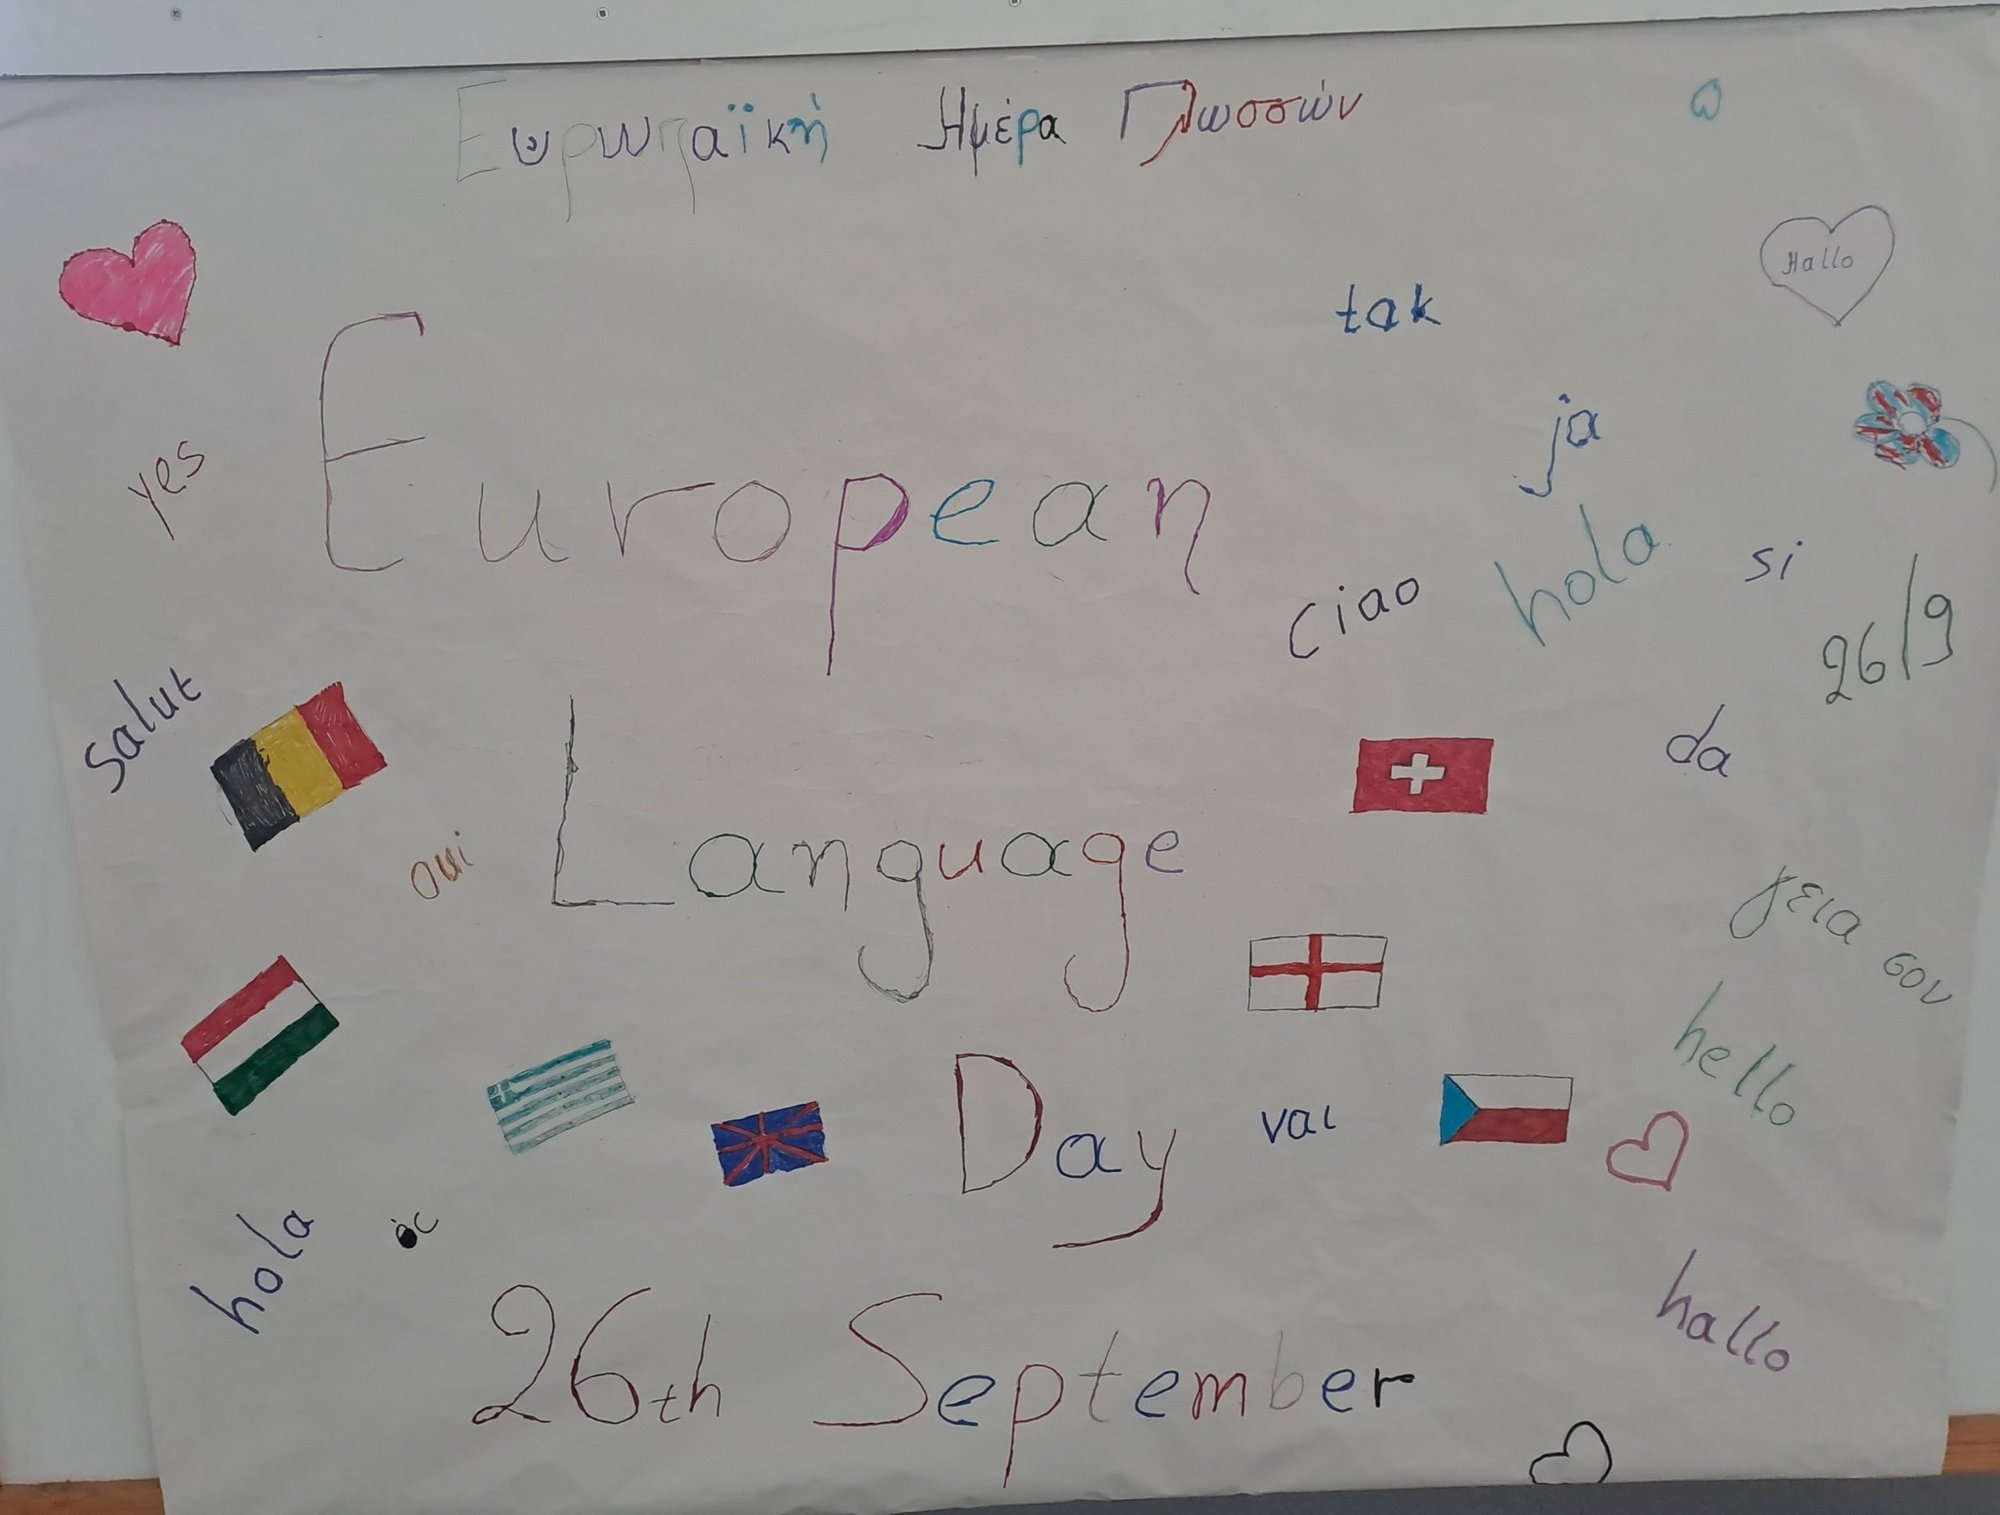 Ευρωπαϊκή Ημέρα Γλωσσών
Hallo
tak
yes
ja
European
hola
si
ciao
26/9
salut
da
oui
Language
γεια σου
hello
Day
ναι
hola
hallo
26th September